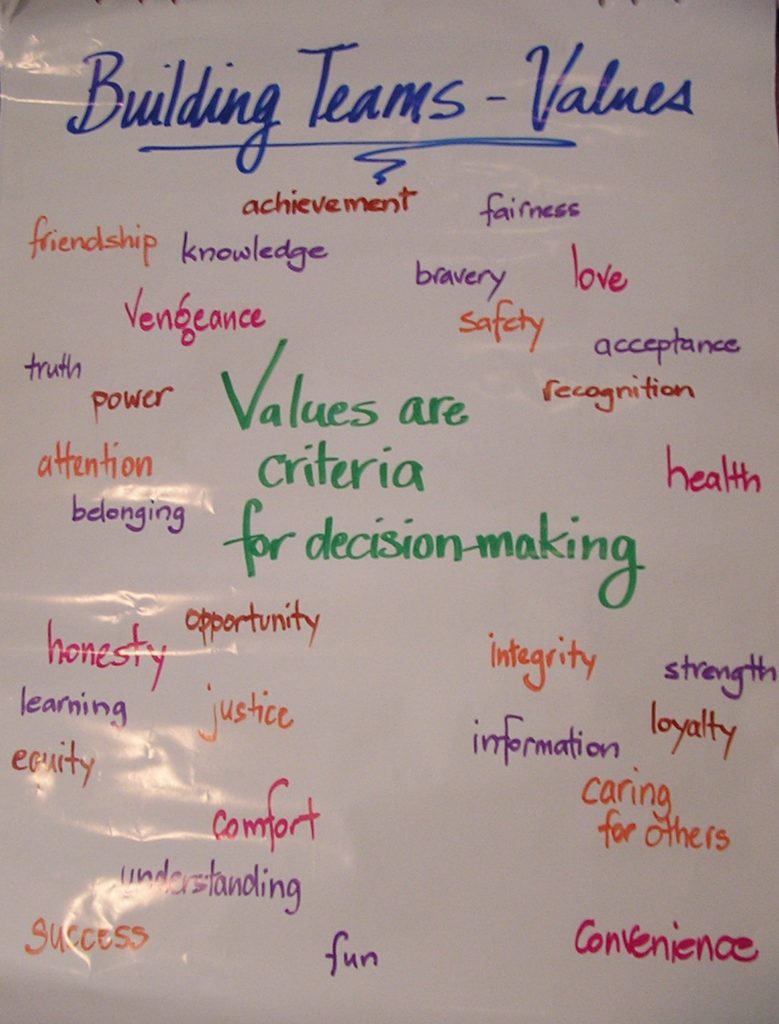 Building Teams - Values
achievement
fairness
friendship
knowledge
bravery
love
Vengeance
safety
acceptance
truth
power
recognition
Values are
criteria
for decision-making
attention
health
belonging
opportunity
honesty
integrity
strength
learning
justice
information
loyalty
equity
caring
for others
comfort
understanding
success
fun
Convenience